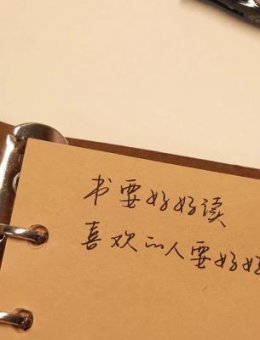 书要好好读
喜欢的人要好好